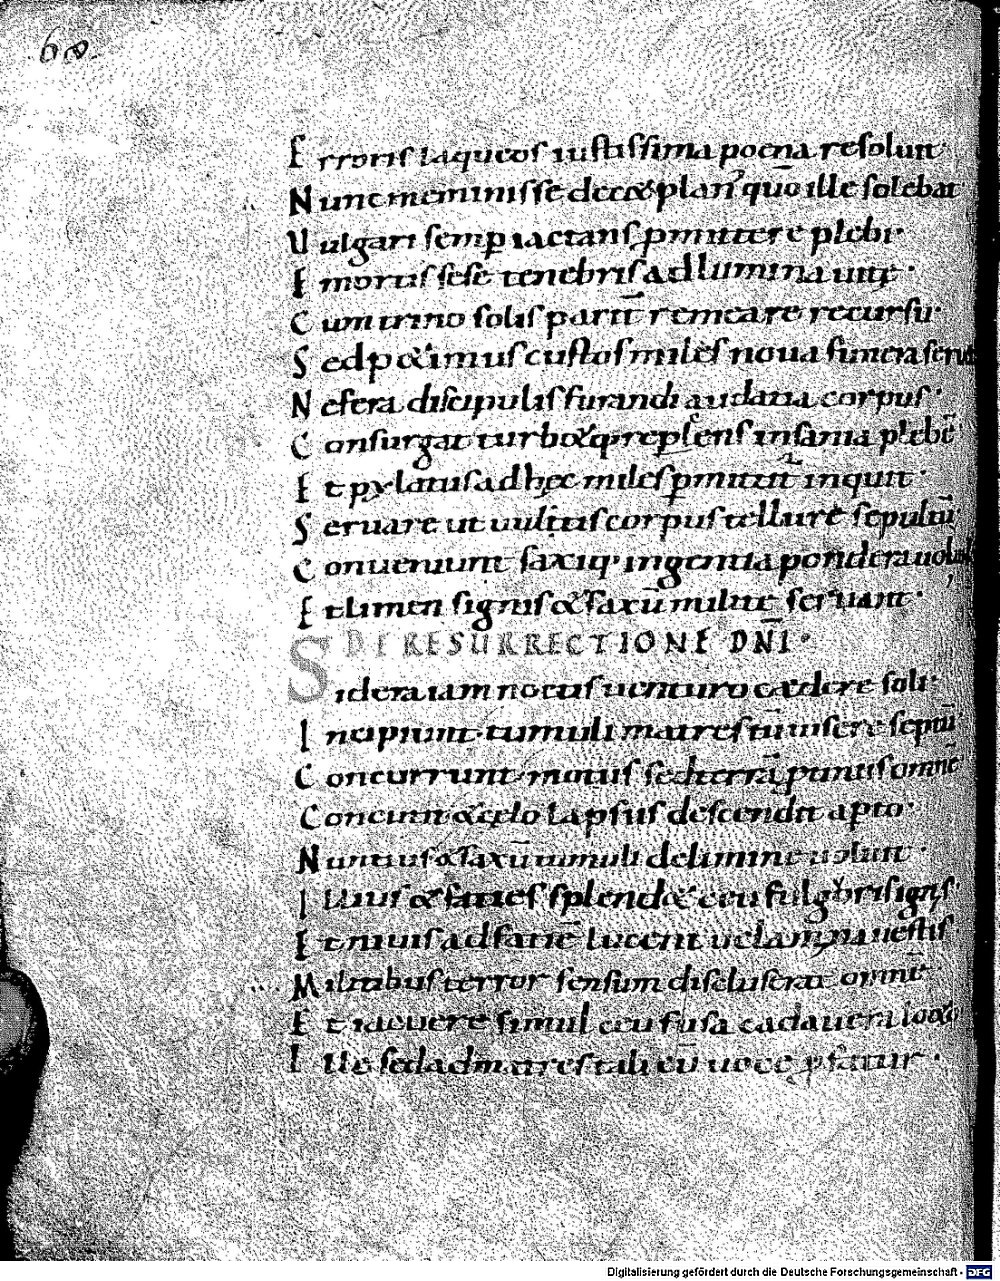 68.
Erroris laqueos iustissima poena resoluit·
Nunc meminisse dec& plan' quō ille solebat·
Uulgari semp iactans pmittere plebi·
E mortis sese tenebris ad lumina uitę·
Cum trino solis parit̄ remeare recursu·
Sed p&imus custos miles noua funera seru
Ne fera discipulis furandi audatia corpus·
Consurgat turb&q; repl&ens insania plebē·
Et pylatus ad hęc miles pmittit̄ inquit·
Seruare ut uultis corpus tellure sepultū
Conueniunt saxiq; ingentia pondera uol
Et limen signis & saxū milite seruant·
DE RESURRECTIONE DN̄I·
Sidera iam noctis uenturo cædere soli·
Incipiunt· tumuli matres tū uisere septū
Concurrunt· motus sed terrā panis omnē
Concutit & cęlo lapsus descendit apto·
Nuntius & saxū tumuli de limine uoluit·
Illius & facies splend& ceu fulg
Et niuis ad faciē lucent uelamina uestis·
Militibus terror sensum discluserat omnē
Et iacuere simul ceu fusa cadauera
Ille sed ad matres tali cū uoce pfatur·
Digitalisierung gefördert durch die Deutsche Forschungsgemeinschaft - DFG